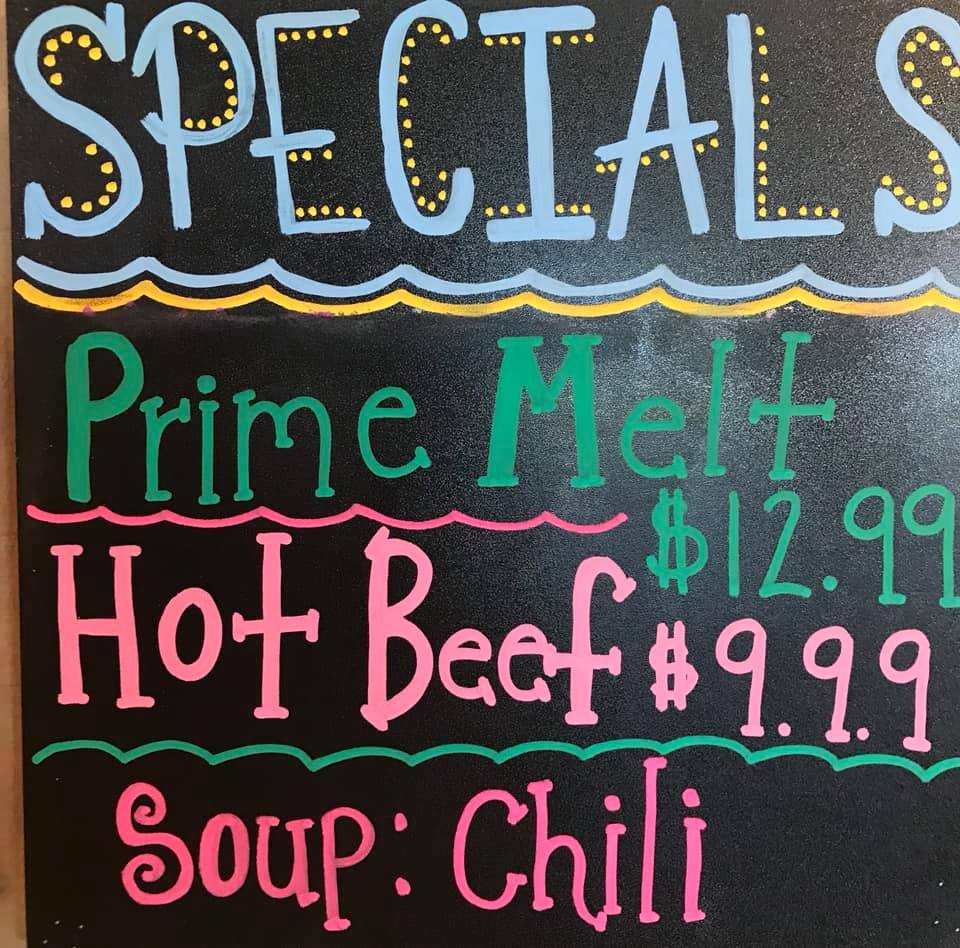 SPECIALS
Prime Melt
$12.99
Hot Beef $9.9.9
Soup: Chili